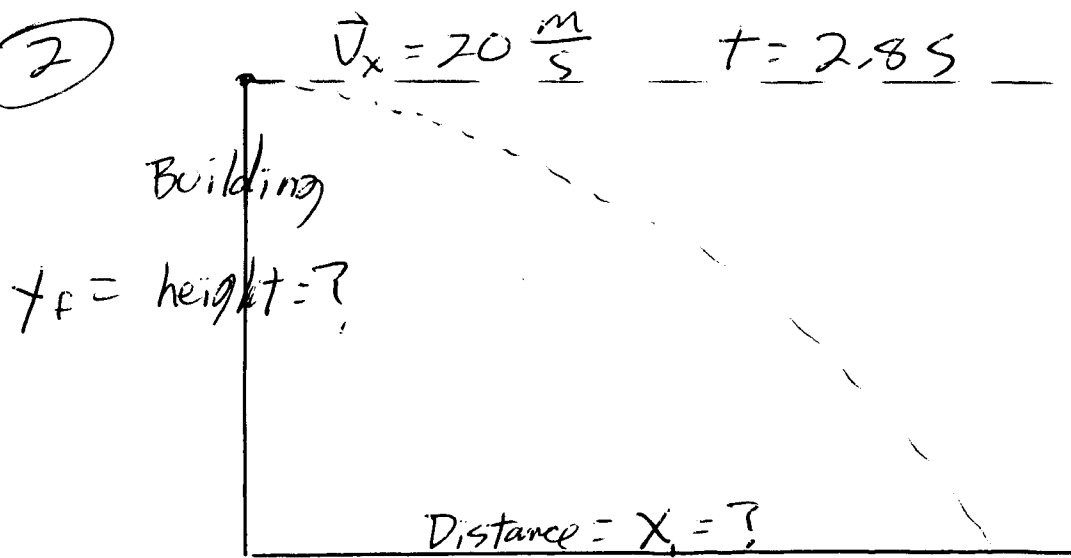 ② V⃗ₓ = 20 m/s t = 2.8 S
Building
y_f = height = ?
Distance = X₁ = ?